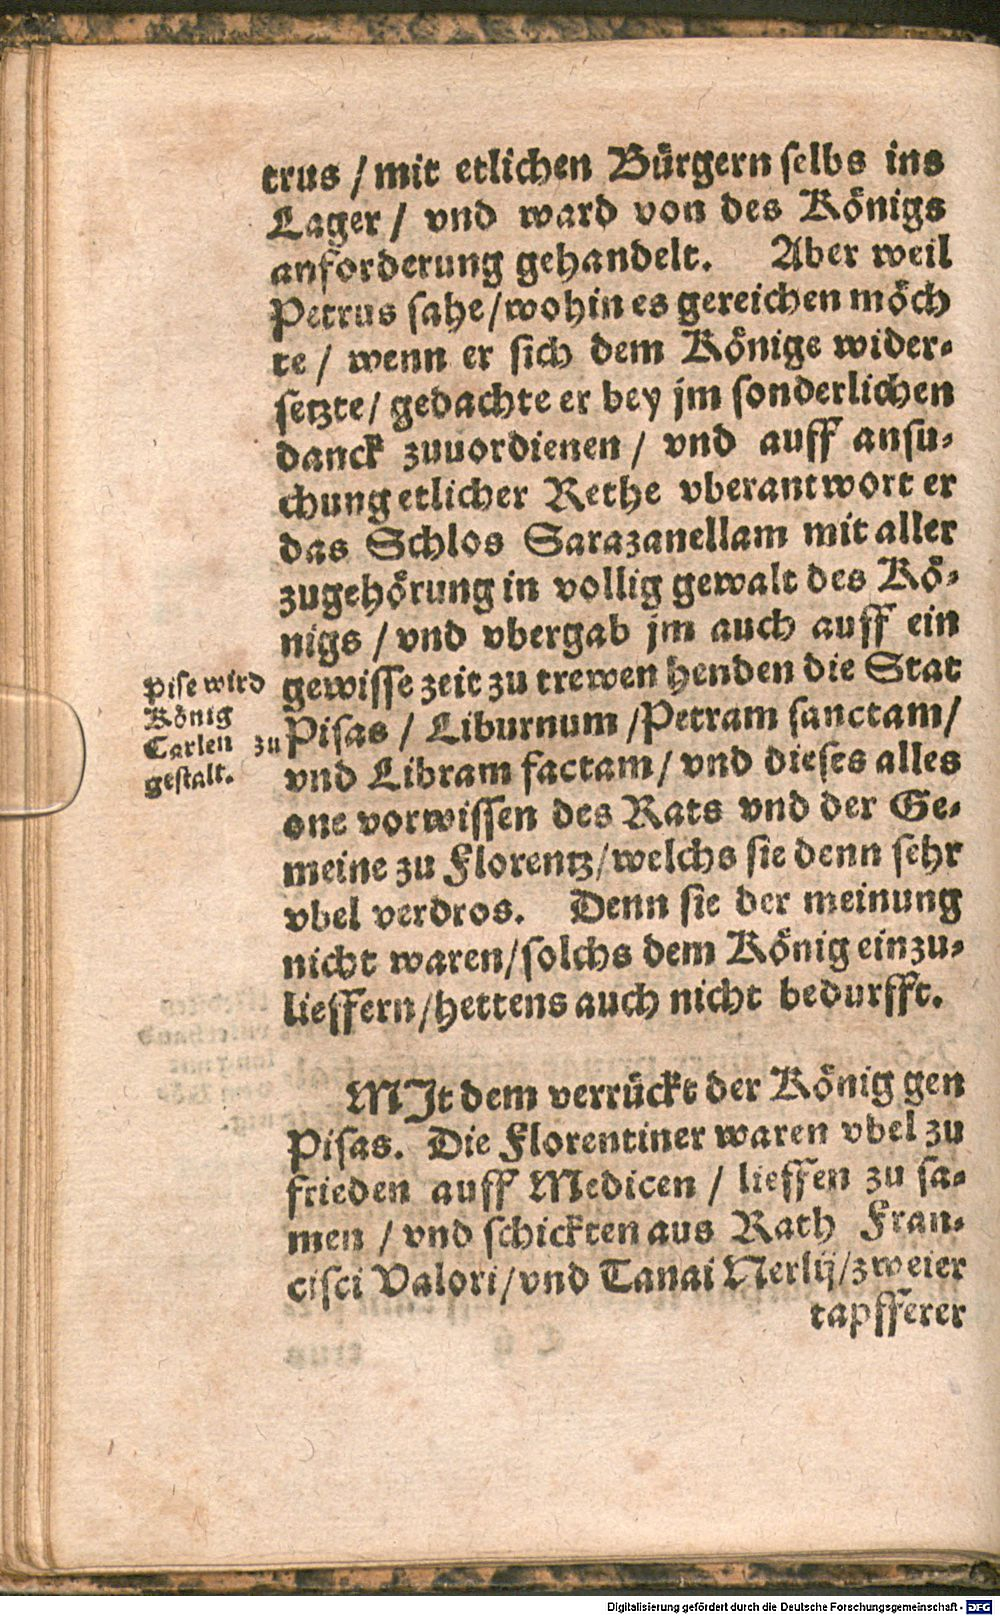 trus / mit etlichen Bürgern selbs ins
Lager / vnd ward von des Königs
anforderung gehandelt. Aber weil
Petrus sahe / wohin es gereichen möch
te / wenn er sich dem Könige wider-
setzte / gedachte er bey jm sonderlichen
danck zuuordienen / vnd auff ansu-
chung etlicher Rethe vberantwort er
das Schlos Sarazanellam mit aller
zugehörung in vollig gewalt des Kö-
nigs / vnd vbergab jm auch auff ein
gewisse zeit zu trewen henden die Stat
Pisas / Liburnum / Petram sanctam /
vnd Libram factam / vnd dieses alles
one vorwissen des Rats vnd der Ge-
meine zu Florentz / welchs sie denn sehr
vbel verdros. Denn sie der meinung
nicht waren / solchs dem König einzu-
lieffern / hettens auch nicht bedurfft.
Pise wird
König
Carlen zu
gestalt.
MJt dem verrückt der König gen
Pisas. Die Florentiner waren vbel zu
frieden auff Medicen / lieffen zu sa-
men / vnd schickten aus Rath Fran-
cisci Valori / vnd Tanai Nerlij / zweier
tapfferer
Digitalisierung gefördert durch die Deutsche Forschungsgemeinschaft - DFG